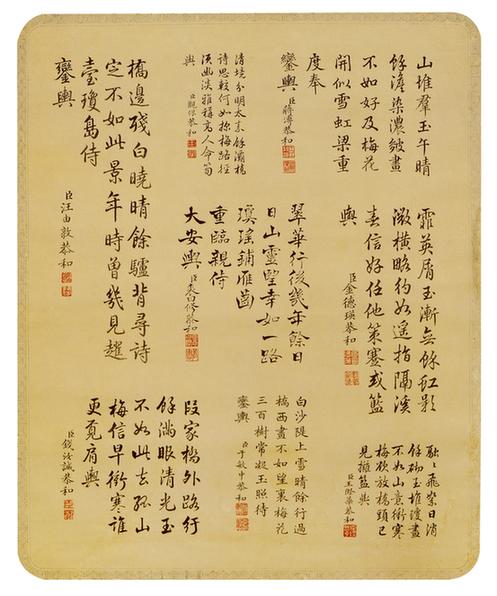 山堆羣玉午晴
餘澹染濃皴畫
不如好及梅花
開似雪虹梁重
度奉
鑾輿 臣蔣溥恭和
清境分明太素餘灞橋
詩思較何如探梅路徑
淡雅稱高人命筍
輿 臣觀保恭和
橋邊殘白曉晴餘驢背尋詩
定不如此景年時曾幾見
臺瓊島侍
鑾輿
臣汪由敦恭和
霏英屑玉漸無餘虹影
微橫略彴如遙指隔溪
春信好任他策蹇或籃
輿 臣金德瑛恭和
翠華行後幾年餘日
日山靈望幸如一路
瓊瑤鋪雁齒
重臨親侍
大安輿 臣裘曰修恭和
融〻飛絮日消
餘砌玉堆瓊畫
不如山意衝寒
梅欲放橋頭已
見擁籃輿
臣王際華恭和
白沙隄上雪晴餘行過
橋西畫不如望裏梅花
三百樹常凝玉照待
鑾輿 臣于敏中恭和
段家橋外路行
餘滿眼清光玉
不如此去孤山
梅信早衝寒誰
更覓肩輿
臣錢汝誠恭和